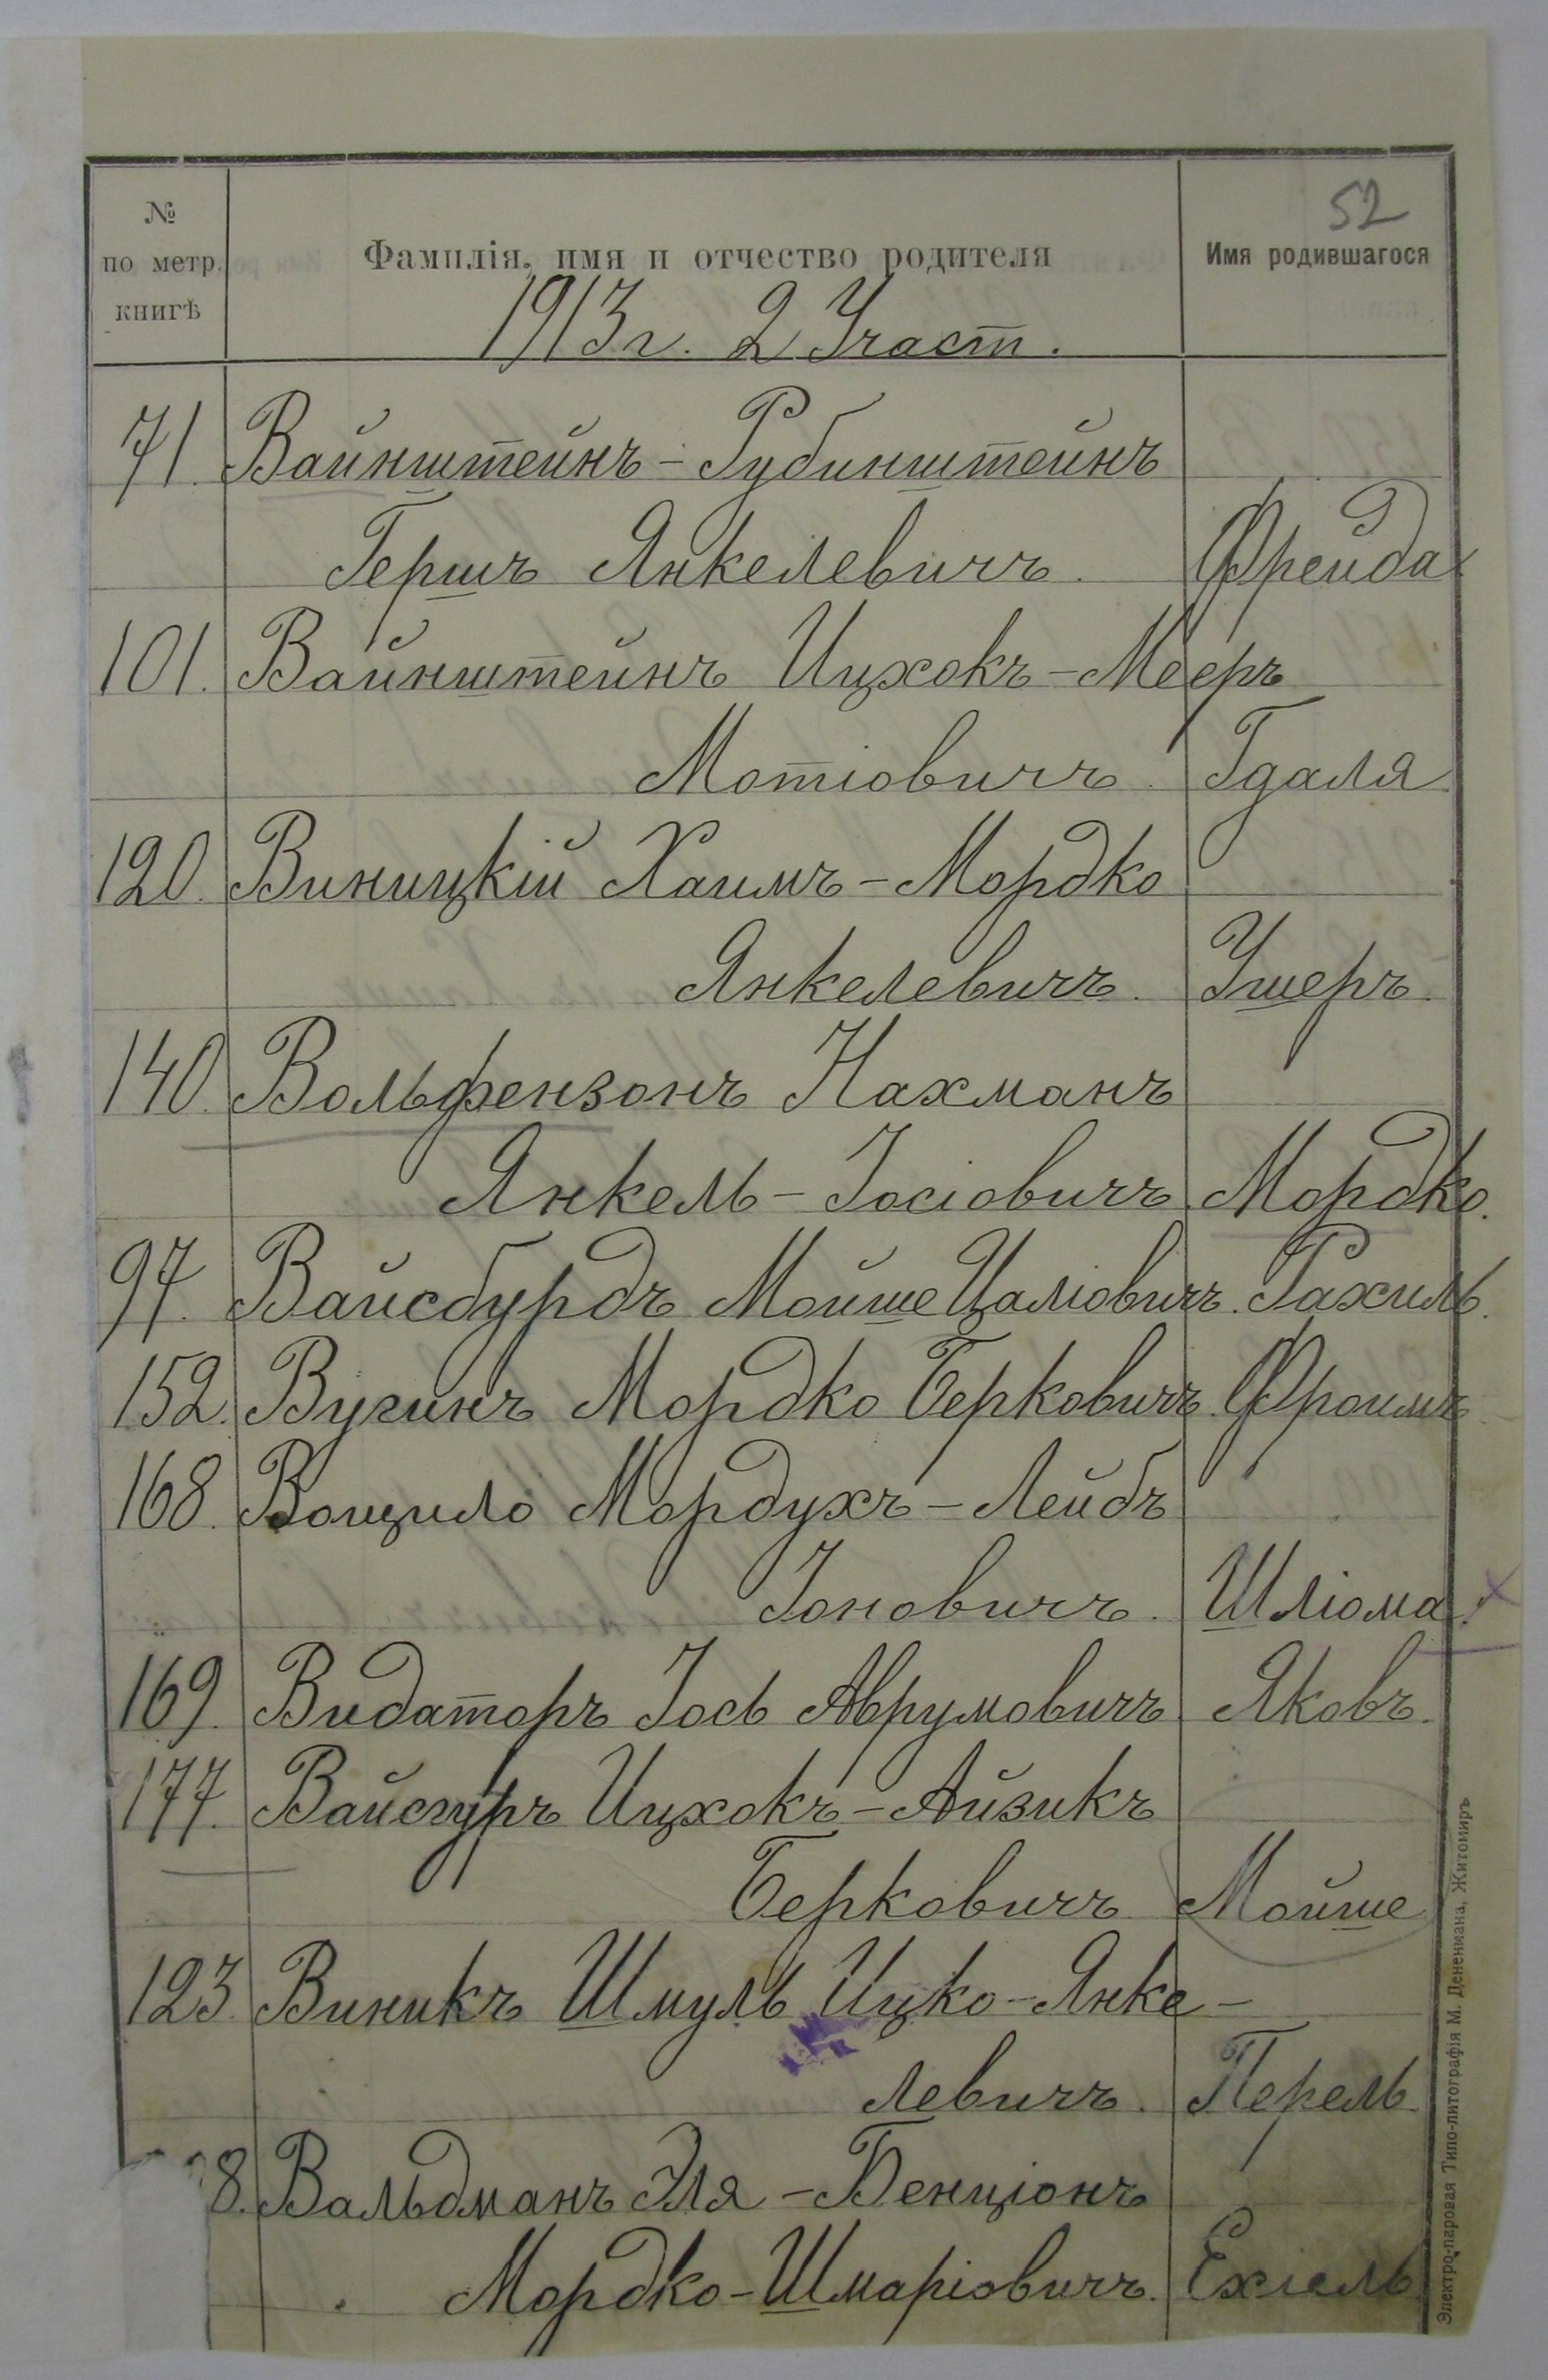 52
№ по метр. книгѣ
Фамилія, имя и отчество родителя
Имя родившагося
1913 г. 2 Участ.
71. Вайнштейнъ-Рубинштейнъ
Гершъ Янкелевичъ. Фрейда
101. Вайнштейнъ Ицхокъ-Мееръ
Мотіовичъ. Гдаля
120. Виницкій Хаимъ-Мордко
Янкелевичъ. Ушеръ.
140. Вольфензонъ Нахманъ
Янкель-Іосіовичъ. Мордко.
97. Вайсбурдъ Мойше Цаліовичъ. Рахиль.
152. Вугинъ Мордко Берковичъ. Фроимъ
168. Вощило Мордухъ-Лейбъ
Іоновичъ. Шліома.
169. Видаторъ Іось Аврумовичъ Яковъ.
177. Ицхокъ-Айзикъ
Берковичъ Мойше
123. Виникъ Шмуль Ицко-Янке-
левичъ. Перель
8. Вальдманъ Эля-Бенціонъ
Мордко-Шмаріовичъ. Ехіель
Электро-паровая Типо-литографія М. Дененмана, Житомиръ